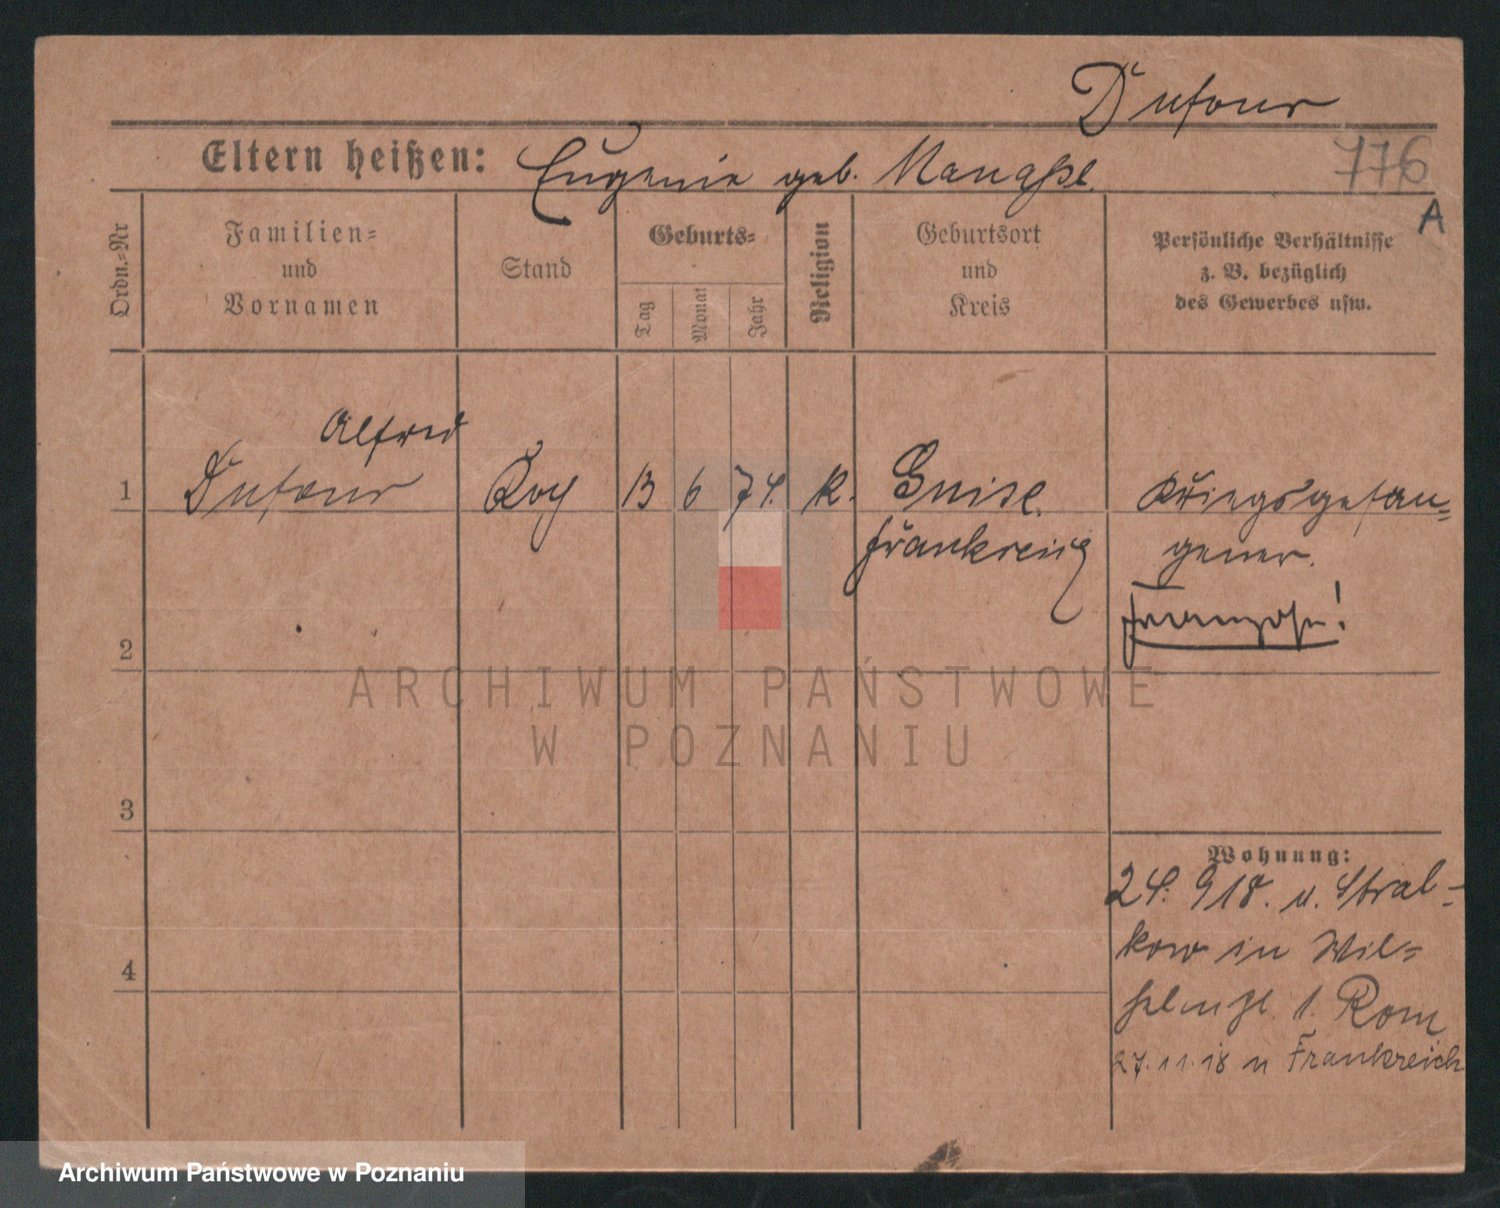 Dufour
Eltern heißen: Eugenie geb. Manasse
776
A
Ordn.-Nr
Familien=
und
Vornamen
Stand
Geburts=
Tag
Monat
Jahr
Religion
Geburtsort
und
Kreis
Persönliche Verhältnisse
z. B. bezüglich
des Gewerbes usw.
Alfred
1 Dufour 13 6 74. k. Guise Kriegsgefan=
Frankreich gener.
Franzose!
2
3
4
Wohnung:
24. 918. v. Stral-
kow in Wil-
1. Rom
27.11.18 n Frankreich
ARCHIWUM PAŃSTWOWE
W POZNANIU
Archiwum Państwowe w Poznaniu